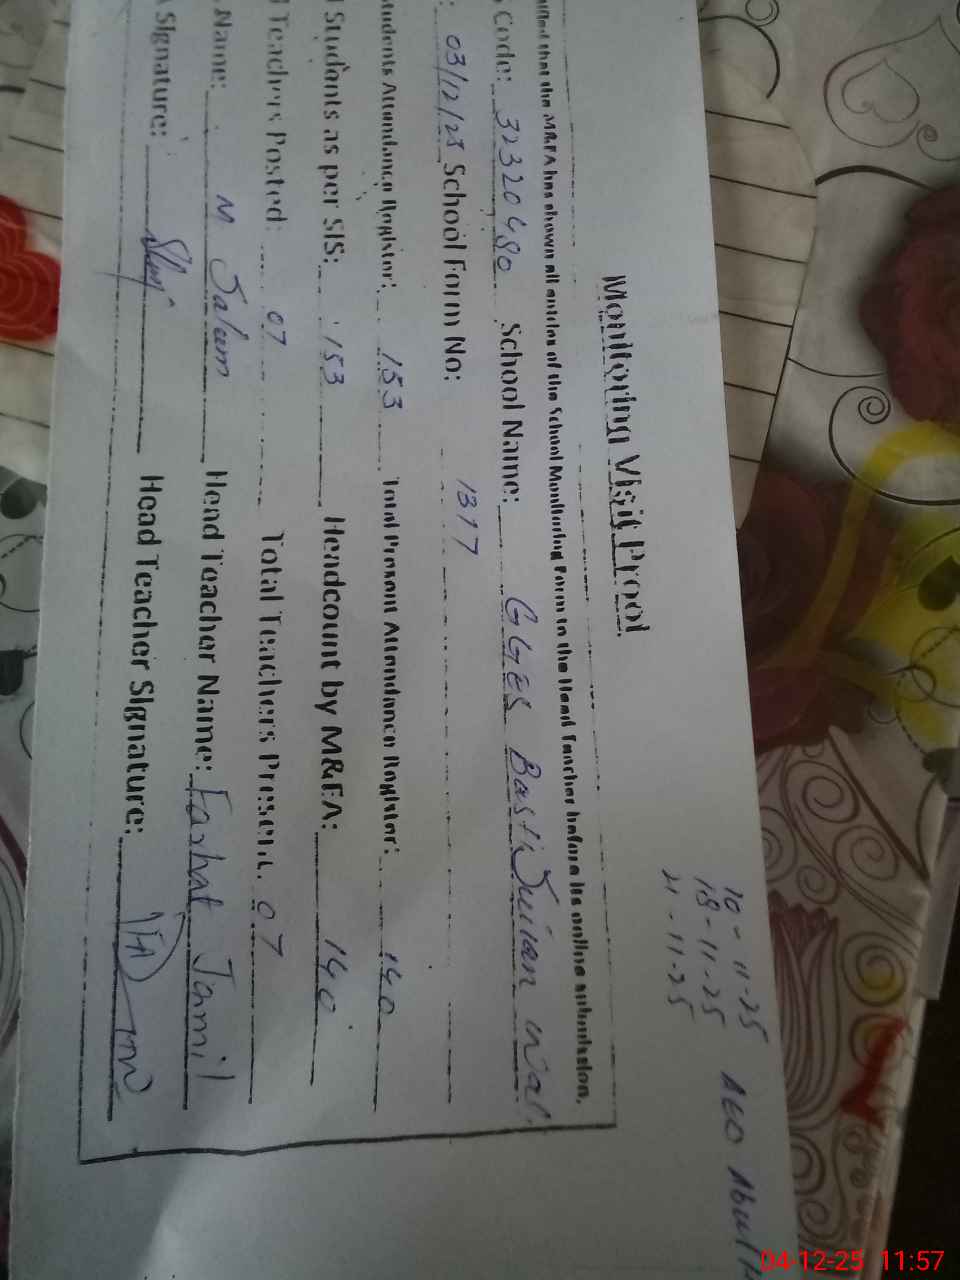 10-11-25 AEO
18-11-25
21-11-25
Monitoring Visit Proof
that the M&EA has shown all entries of the School Monitoring Form to the Head Teacher before its online submission.
Code: 32320480 School Name: GGES Basti
: 03/12/25 School Form No: 1317
Students Attendance Register: 153 Total Present Attendance Register: 140
Students as per SIS: 153 Headcount by M&EA: 140
Teachers Posted: 07 Total Teachers Present: 07
Name: M Salum Head Teacher Name: Farhat Jamil
Signature: Head Teacher Signature:
04-12-25 11:57